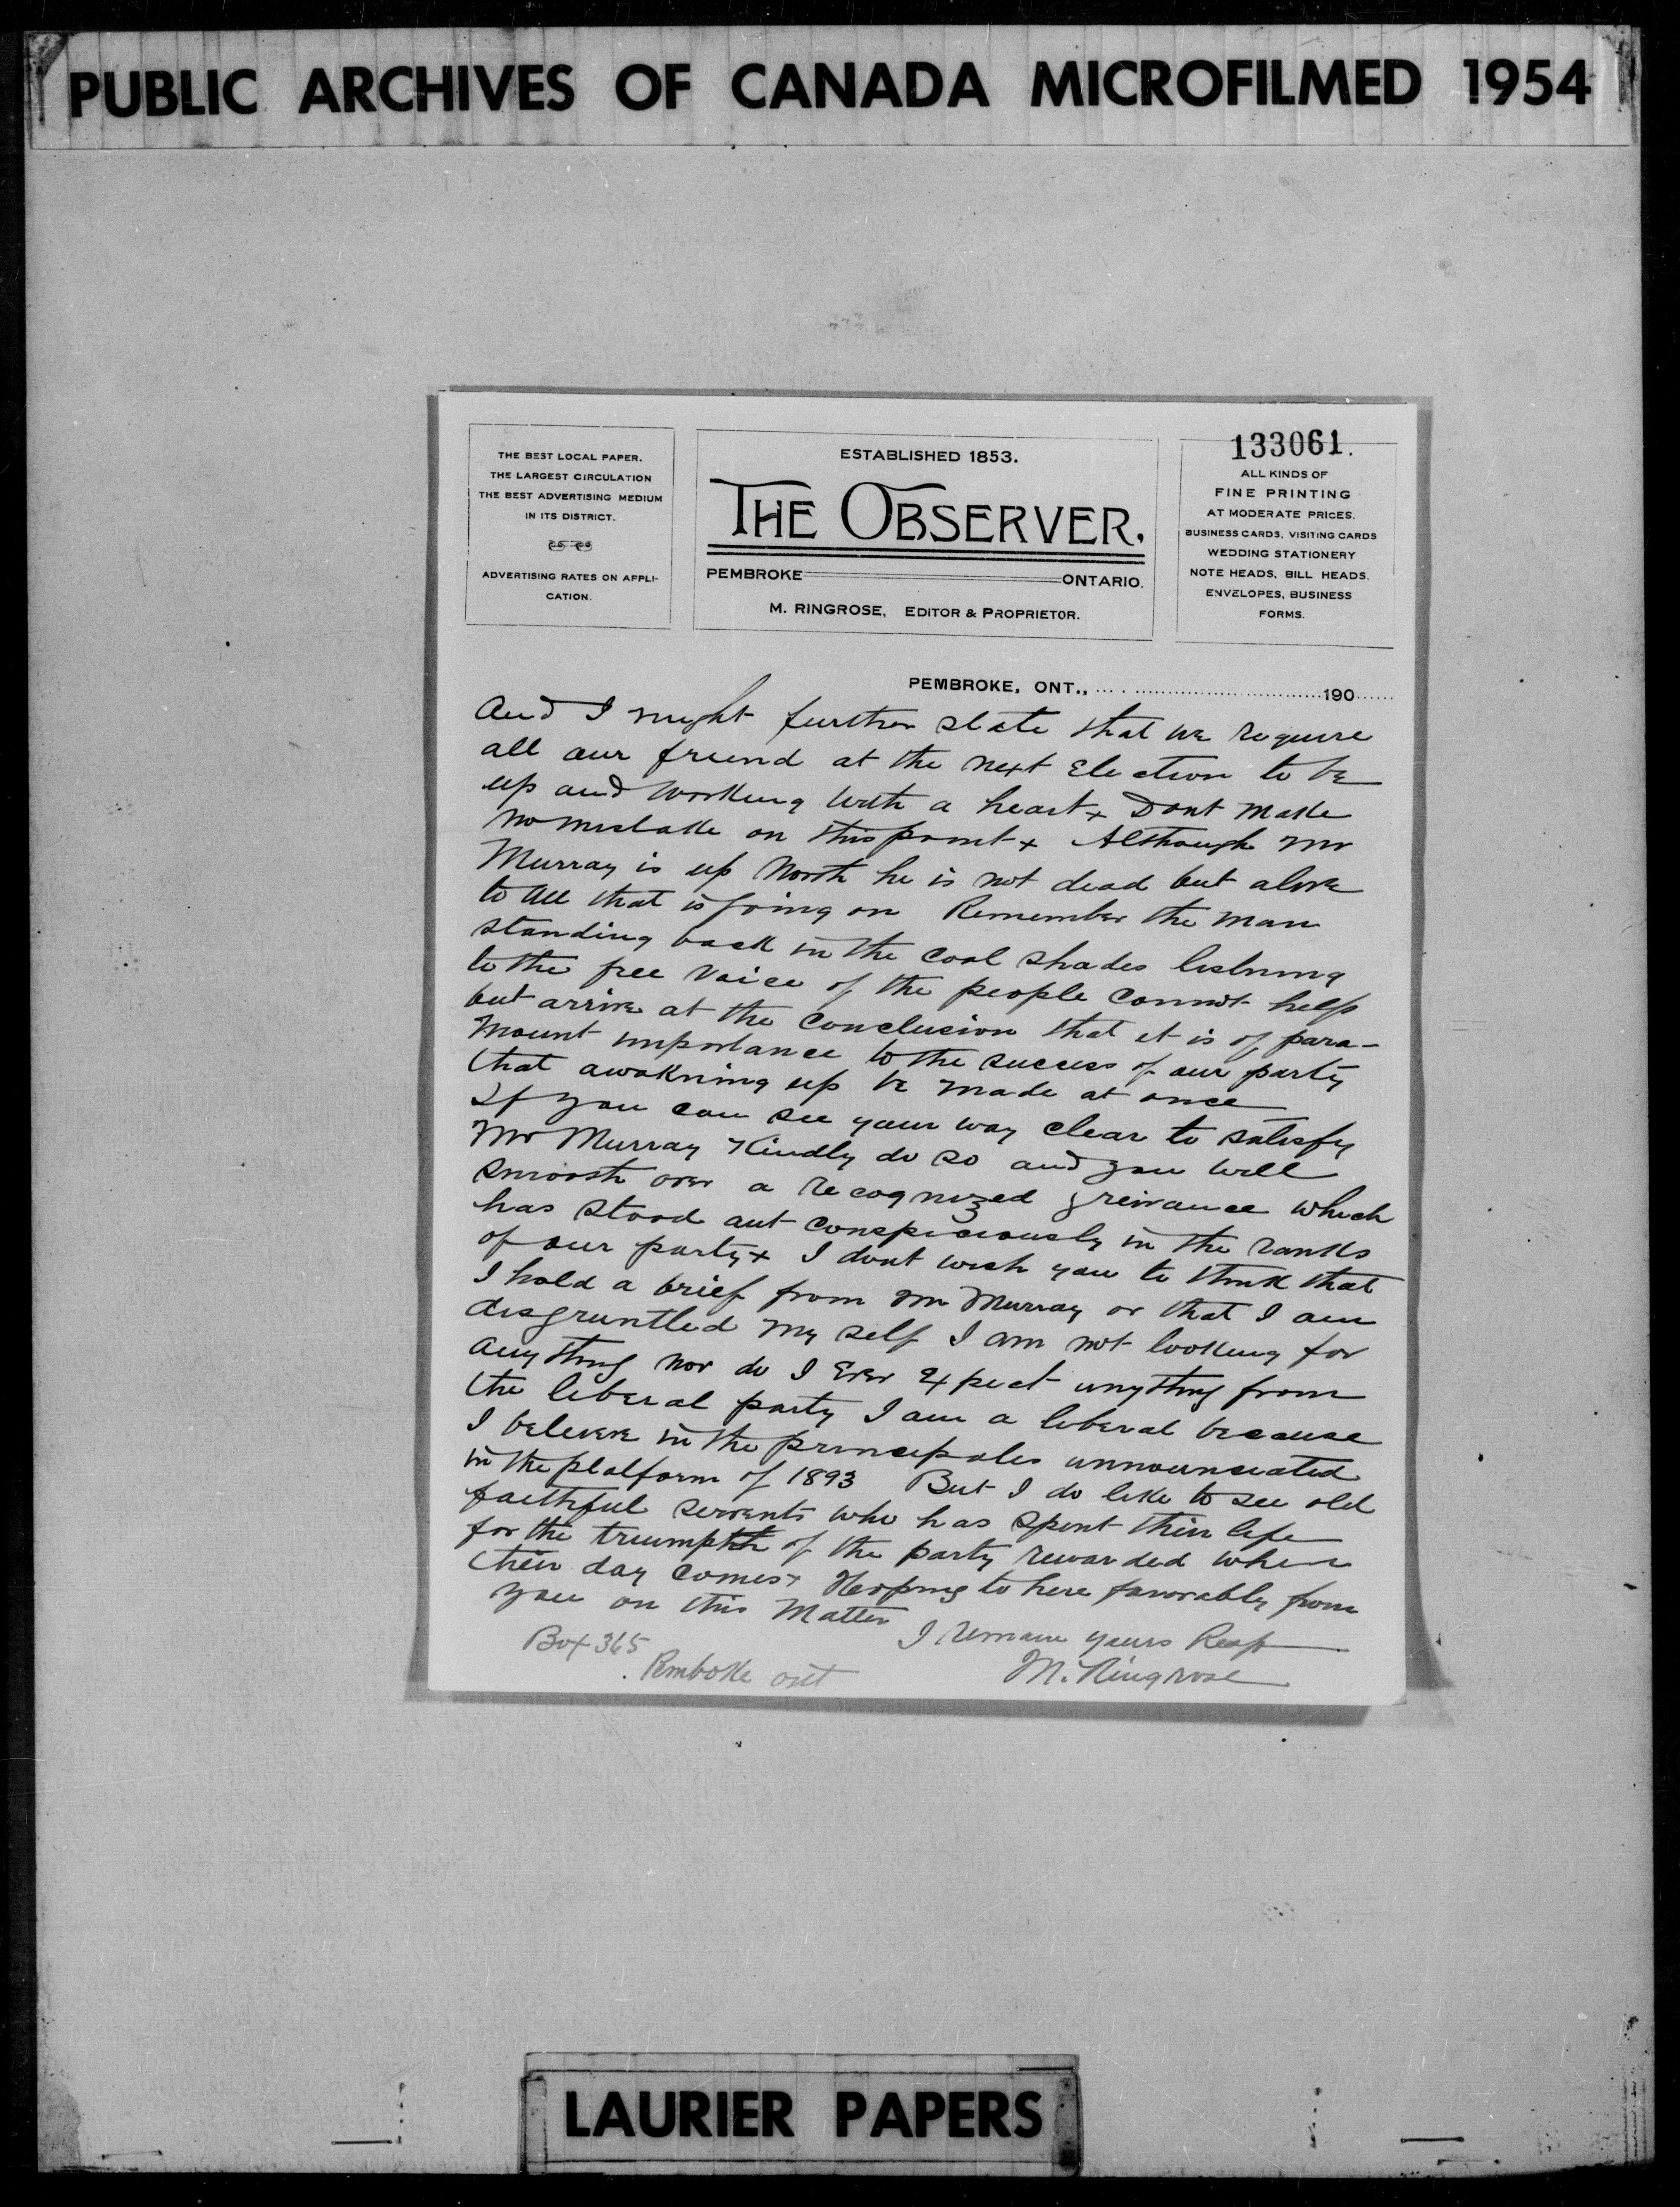 PUBLIC ARCHIVES OF CANADA MICROFILMED 1954
THE BEST LOCAL PAPER.
THE LARGEST CIRCULATION
THE BEST ADVERTISING MEDIUM
IN ITS DISTRICT.
ADVERTISING RATES ON APPLI-
CATION.
ESTABLISHED 1853.
THE OBSERVER.
PEMBROKE ONTARIO.
M. RINGROSE, EDITOR & PROPRIETOR.
133061.
ALL KINDS OF
FINE PRINTING
AT MODERATE PRICES.
BUSINESS CARDS, VISITING CARDS
WEDDING STATIONERY
NOTE HEADS, BILL HEADS.
ENVELOPES, BUSINESS
FORMS.
PEMBROKE, ONT., 190
And I might further state that we require
all our friend at the next Election to be
up and working with a heart x Dont make
no mistake on this point x Although Mr
Murray is up North he is not dead but alive
to all that is going on Remember the man
standing back in the cool shades listning
to the free voice of the people cannot help
but arrive at the conclusion that it is of para-
mount importance to the success of our party
that awakning up be made at once
If you can see your way clear to satisfy
Mr Murray Kindly do so and you will
smooth over a recognized greivance which
has stood out conspiciously in the ranks
of our party x I dont wish you to think that
I hold a brief from Mr Murray or that I am
disgruntled my self I am not looking for
any thing nor do I Ever Expect anything from
the liberal party I am a liberal because
I beleive in the principales announciated
in the platform of 1893 But I do like to see old
faithful servents who has spent thier life
for the triumphth of the party rewarded when
their day comes x Hopping to here favorably from
you on this Matter
I remain yours Resp
M. Ringrose
Box 365
Pemboke ont
LAURIER PAPERS